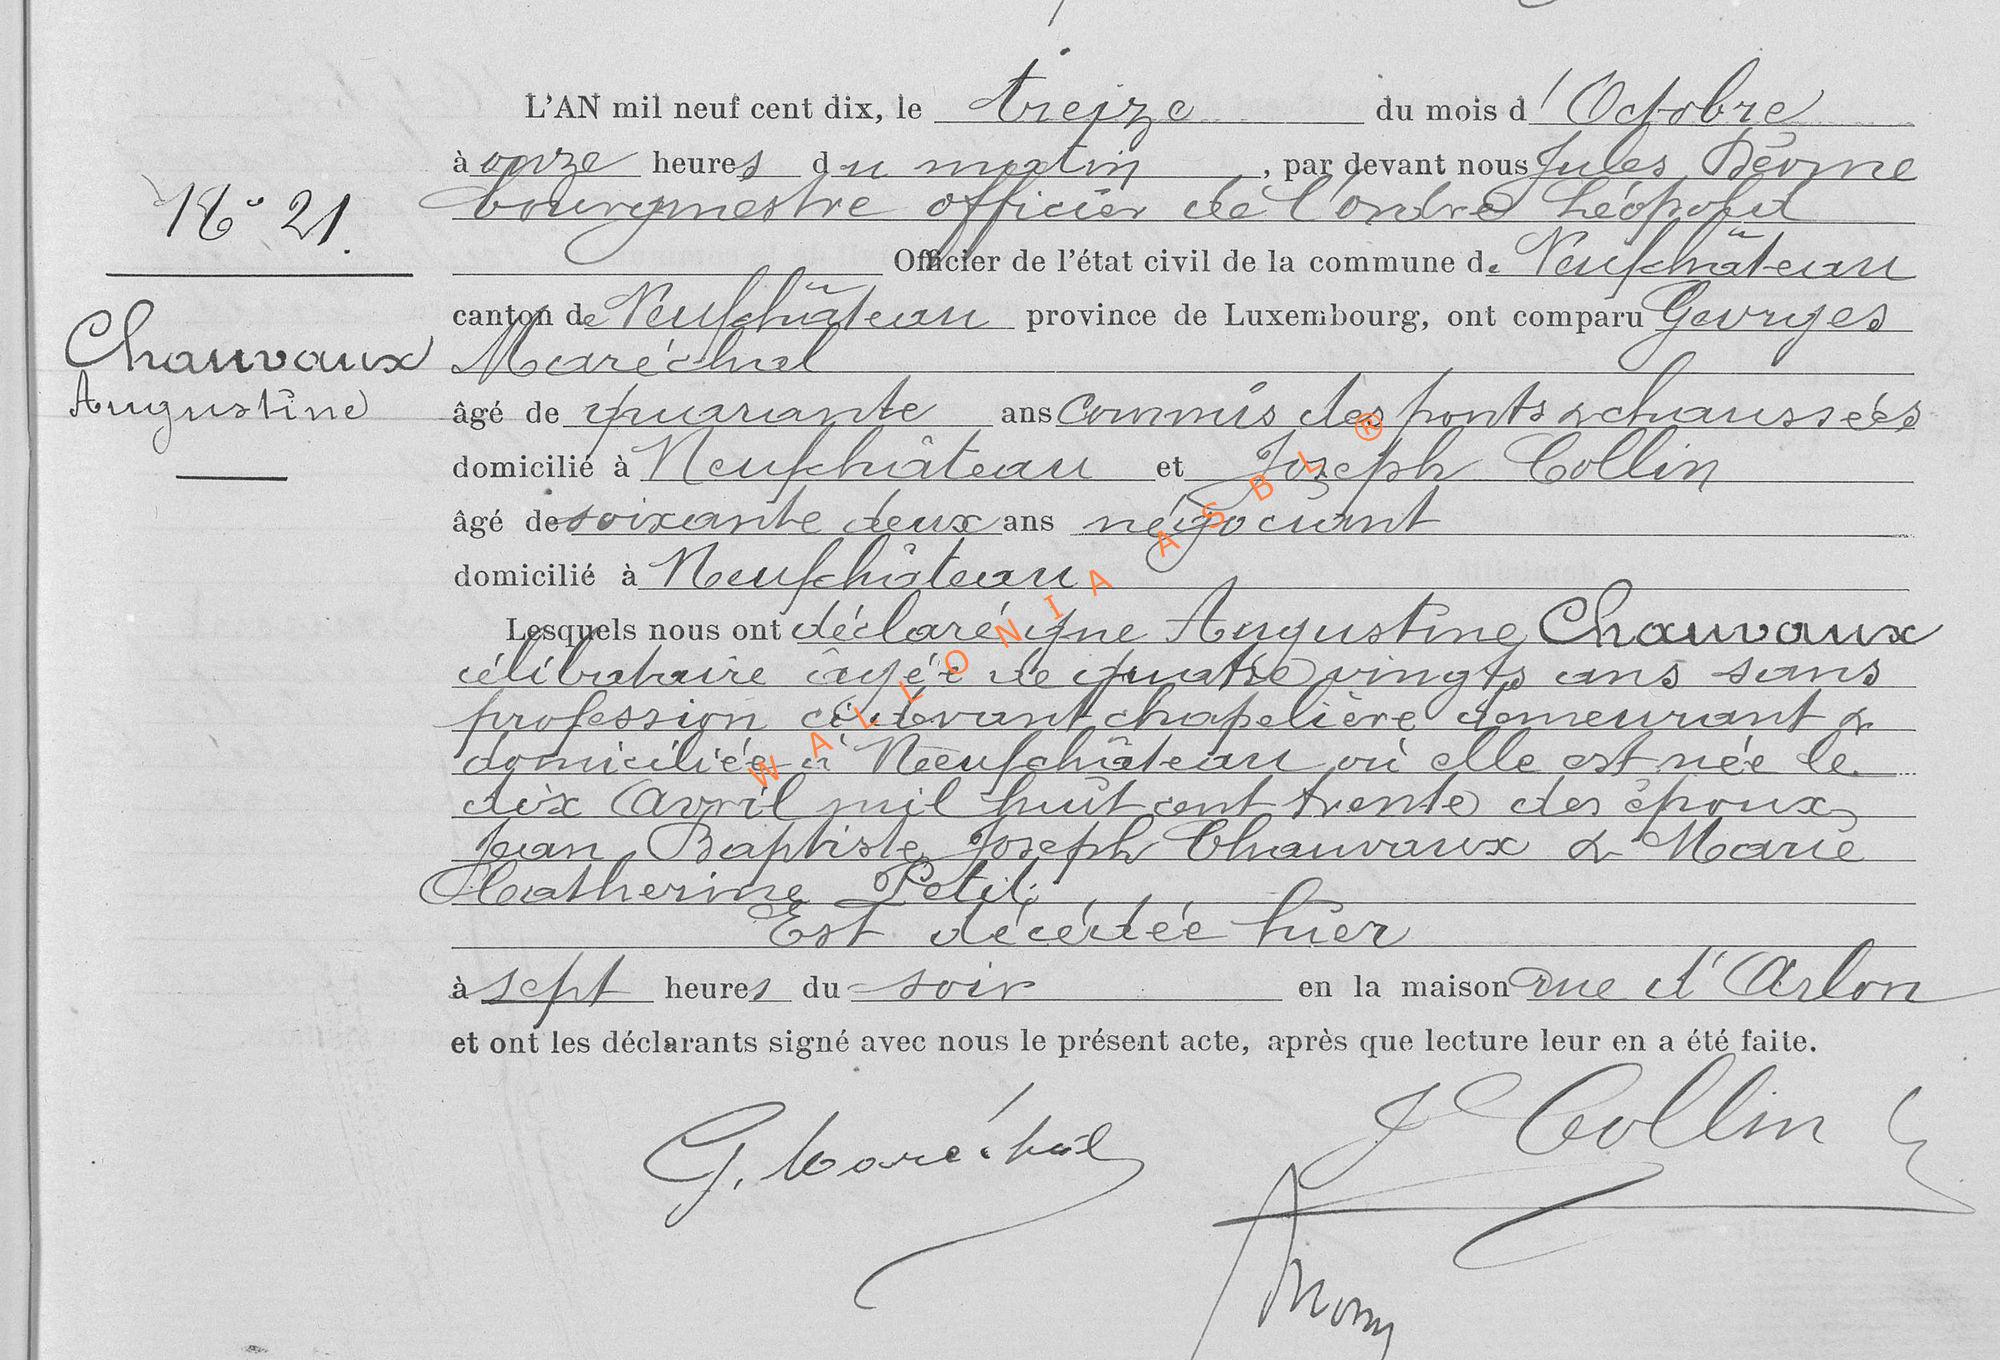 L'AN mil neuf cent dix, le treize du mois d'Octobre
à onze heures du matin, par devant nous Jules
bourgmestre officier de l'ordre Léopold
Officier de l'état civil de la commune de Neufchâteau
canton de Neufchâteau province de Luxembourg, ont comparu Georges
Maréchal
âgé de quarante ans commis des ponts & chaussées
domicilié à Neufchâteau et Joseph Collin
âgé de soixante deux ans négociant
domicilié à Neufchâteau
Lesquels nous ont déclaré que Augustine Chauvaux
célibataire âgée de quatre vingts ans sans
profession ci devant chapelière demeurant &
domiciliée à Neufchâteau où elle est née le
dix Avril mil huit cent trente des époux
Jean Baptiste Joseph Chauvaux & Marie
Catherine Petit;
Est décédée hier
à sept heures du soir en la maison rue d'Arlon
et ont les déclarants signé avec nous le présent acte, après que lecture leur en a été faite.
No 21.
Chauvaux
Augustine
G. Maréchal
J Collin
WALLONIA ASBL ®